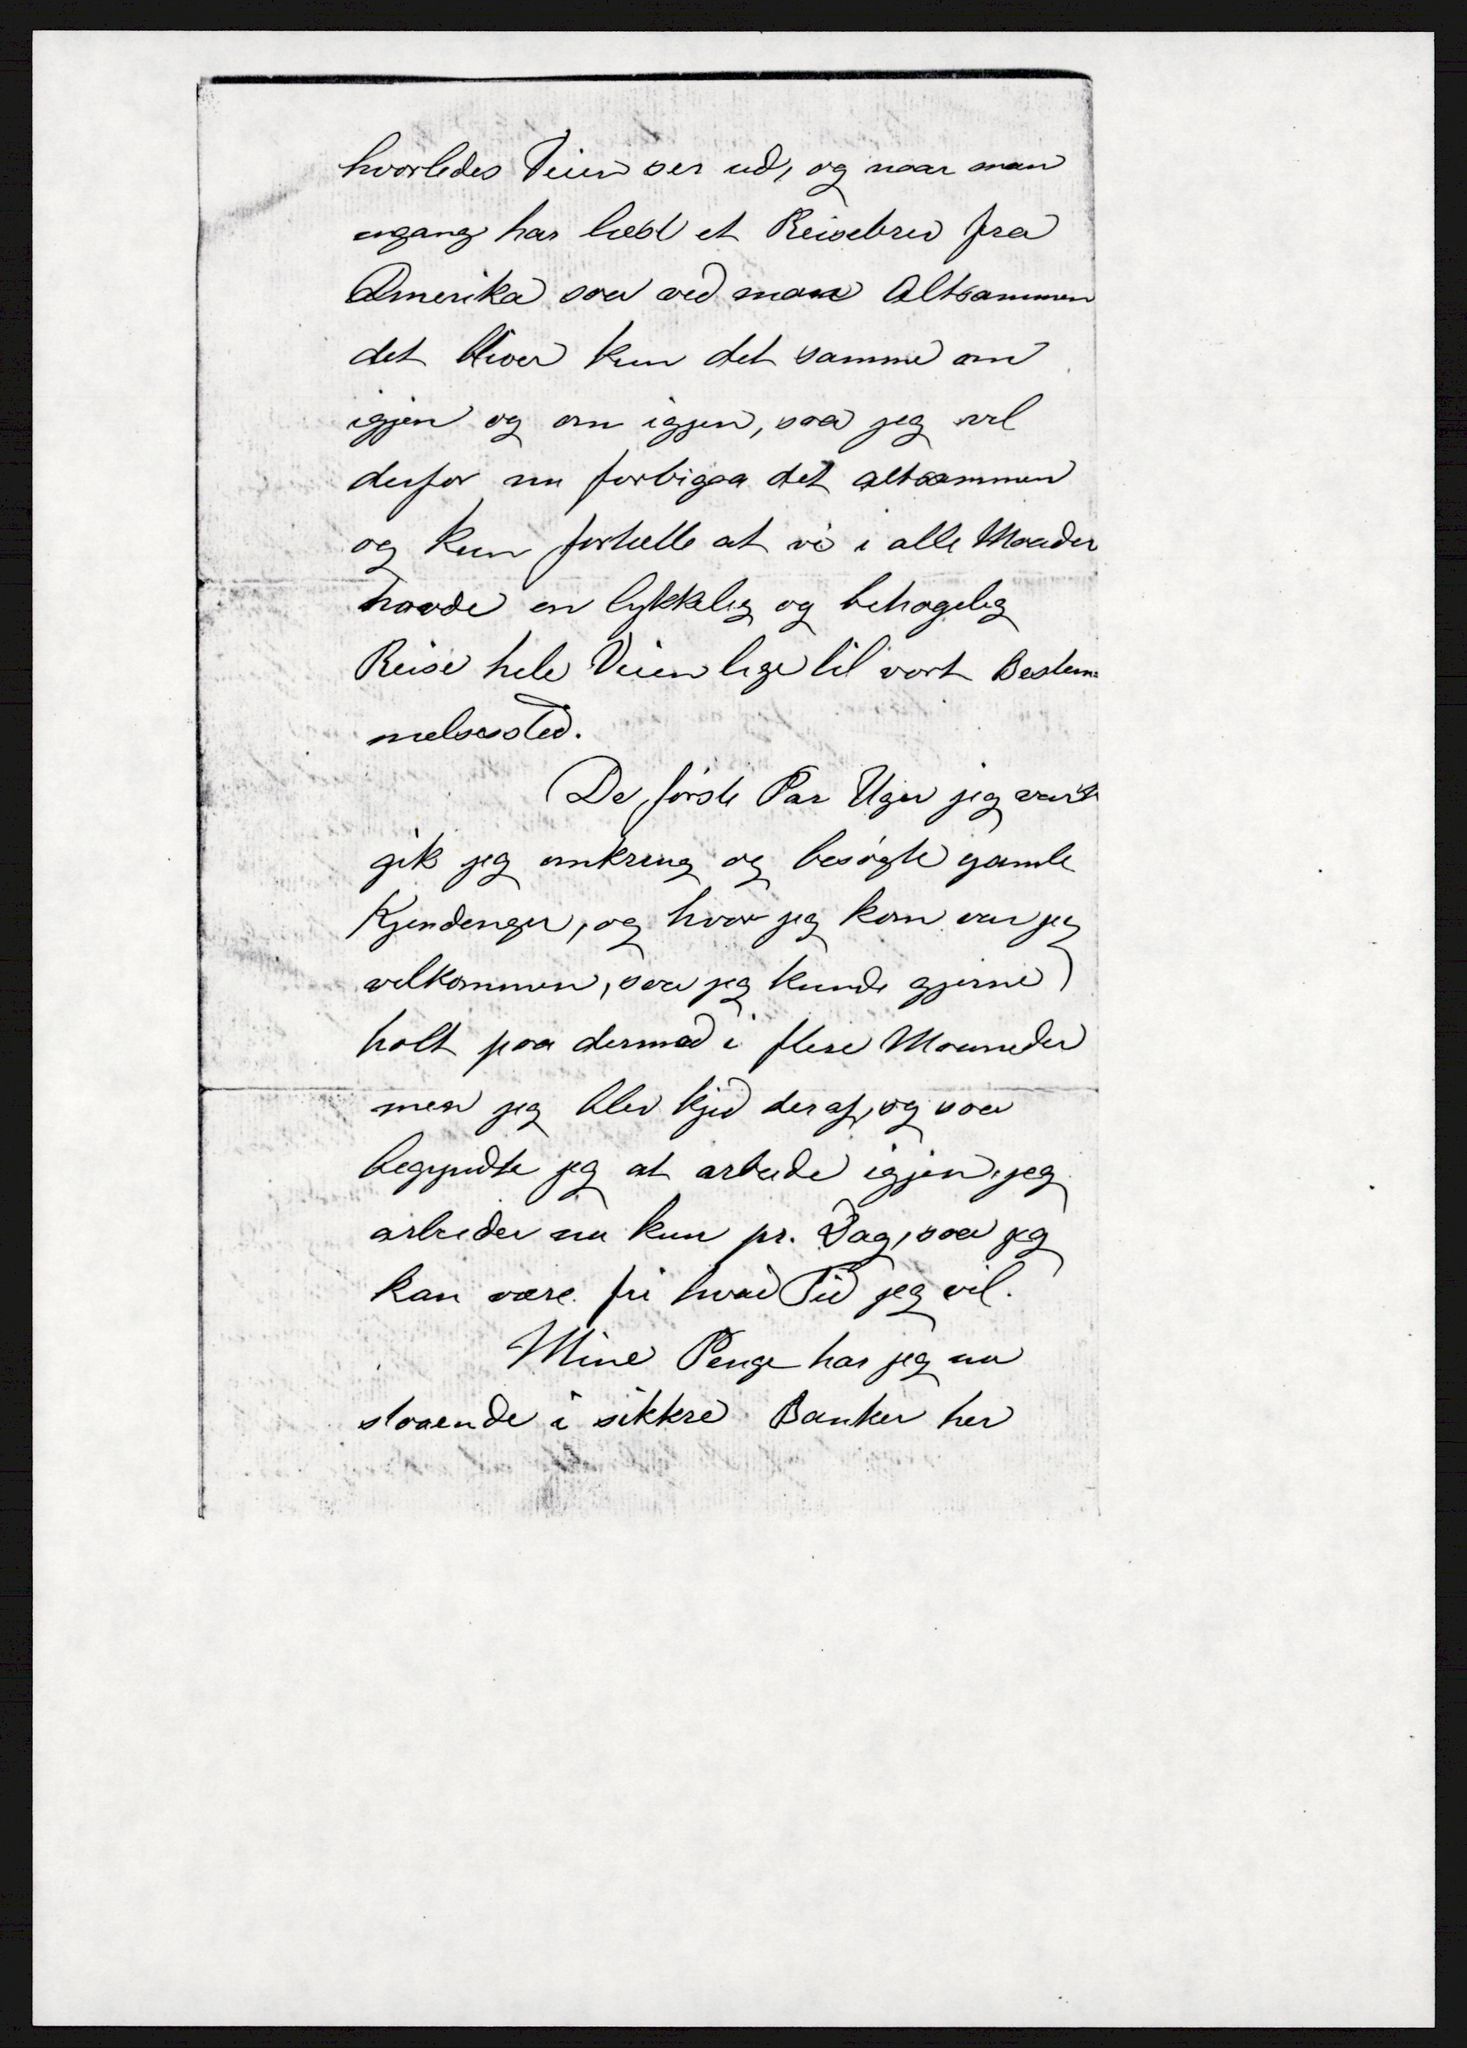 hvorledes Veien ser ud, og naar man
engang har læst et Reisebrev fra
Amerika saa ved man Altsammen
det bliver kun det samme om
igjen og om igjen, saa jeg vil
derfor nu forbigaa det altsammen
og kun fortælle at vi i alle Maader
havde en lykkelig og behagelig
Reise hele Veien lige til vort Bestem-
melsessted.
De første Par Uger jeg var
gik jeg omkring og besøgte gamle
Kjendinger, og hvor jeg kom var jeg
velkommen, saa jeg kunde gjerne
holt paa dermed i flere Maaneder
men jeg blev kjed deraf, og saa
begyndte jeg at arbeide igjen, jeg
arbeider nu kun pr. Dag, saa jeg
kan være fri hvad Tid jeg vil.
Mine Penge har jeg nu
staaende i sikkre Banker her